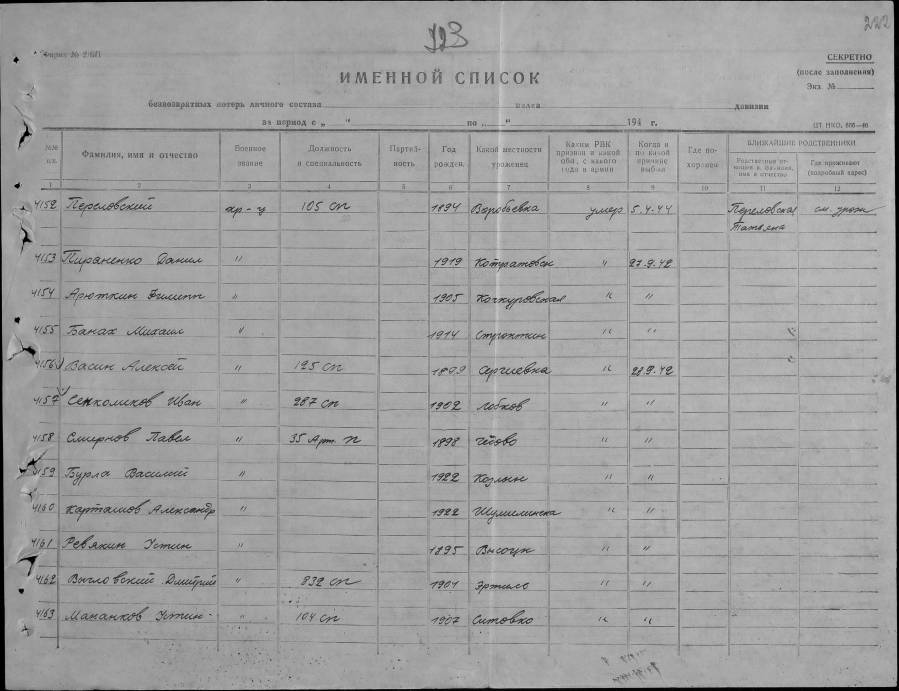 723
222
Форма № 2/БП
СЕКРЕТНО
(после заполнения)
Экз. №
ИМЕННОЙ СПИСОК
безвозвратных потерь личного состава полка дивизии
за период с „ “ по „ “ 194 г.
ЦТ НКО. 686—46
№№ пп. Фамилия, имя и отчество Военное звание Должность и специальность Партий-ность Год рожден. Какой местности уроженец Каким РВК призван и какой обл., с какого года в армии Когда и по какой причине выбыл Где по-хоронен БЛИЖАЙШИЕ РОДСТВЕННИКИ
Родственные от-ношения и фамилия, имя и отчество Где проживают (подробный адрес)
1 2 3 4 5 6 7 8 9 10 11 12
4152 Переловский кр-ц 105 сп 1894 Воробьевка умер 5.4.44 Переловская Татьяна см. урож
4153 Пираненко Данил " 1919 " 27.9.42
4154 Арюткин Филипп " 1905 Кочкуровская " "
4155 Банах Михаил " 1914 " "
4156 Васин Алексей " 125 сп 1899 Сергиевка " 28.9.42
4157 Сенкомиков Иван " 287 сп 1902 Лобков " "
4158 Смирнов Павел " 35 Арт. п 1898 " "
4159 Бурла Василий " 1922 Козлын " "
4160 Карташов Александр " 1922 Шумилинска " "
4161 Ревякин Устин " 1895 Высоцк " "
4162 Выгловский Дмитрий " 832 сп 1901 Эртиль " "
4163 Маканков Устин " 104 сп 1907 Ситовко " "